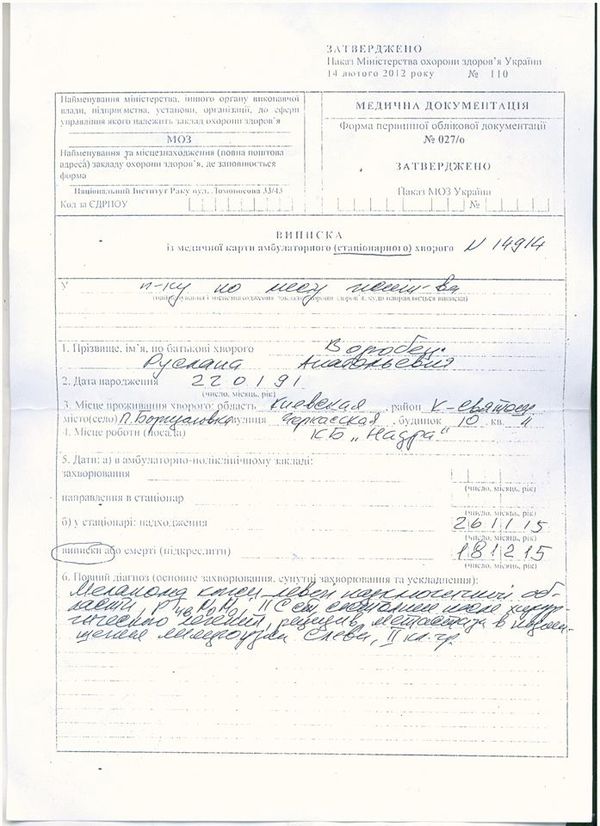 ЗАТВЕРДЖЕНО
Наказ Міністерства охорони здоров'я України
14 лютого 2012 року № 110
Найменування міністерства, іншого органу виконавчої
влади, підприємства, установи, організації, до сфери
управління якого належить заклад охорони здоров'я
МОЗ
Найменування та місцезнаходження (повна поштова
адреса) закладу охорони здоров'я, де заповнюється
форма
Національний Інститут Раку вул. Ломоносова 33/43
Код за ЄДРПОУ
МЕДИЧНА ДОКУМЕНТАЦІЯ
Форма первинної облікової документації
№ 027/о
ЗАТВЕРДЖЕНО
Наказ МОЗ України
№
ВИПИСКА
із медичної карти амбулаторного (стаціонарного) хворого N 14914
У п-ку по месту
(найменування і місцезнаходження закладу охорони здоров'я, куди направляється виписка)
1. Прізвище, ім'я, по батькові хворого Воробей
Руслана Анатольевна
2. Дата народження 220191
(число, місяць, рік)
3. Місце проживання хворого: область Киевская, район К-Святош
місто(село) вулиця Черкасская, будинок 10 кв. 4
4. Місце роботи (посада) КБ „Надра"
5. Дати: а) в амбулаторно-поліклінічному закладі:
захворювання
(число, місяць, рік)
направлення в стаціонар
(число, місяць, рік)
б) у стаціонарі: надходження 261115
(число, місяць, рік)
виписки або смерті (підкреслити) 181215
(число, місяць, рік)
6. Повний діагноз (основне захворювання, супутні захворювання та ускладнення):
Меланома кожи левой об-
ласти, pT4bN0M0, II C ст, состояние после хирур-
гического лечения, рецидив, метастазы в
лимфоузлы слева, II кл. гр.